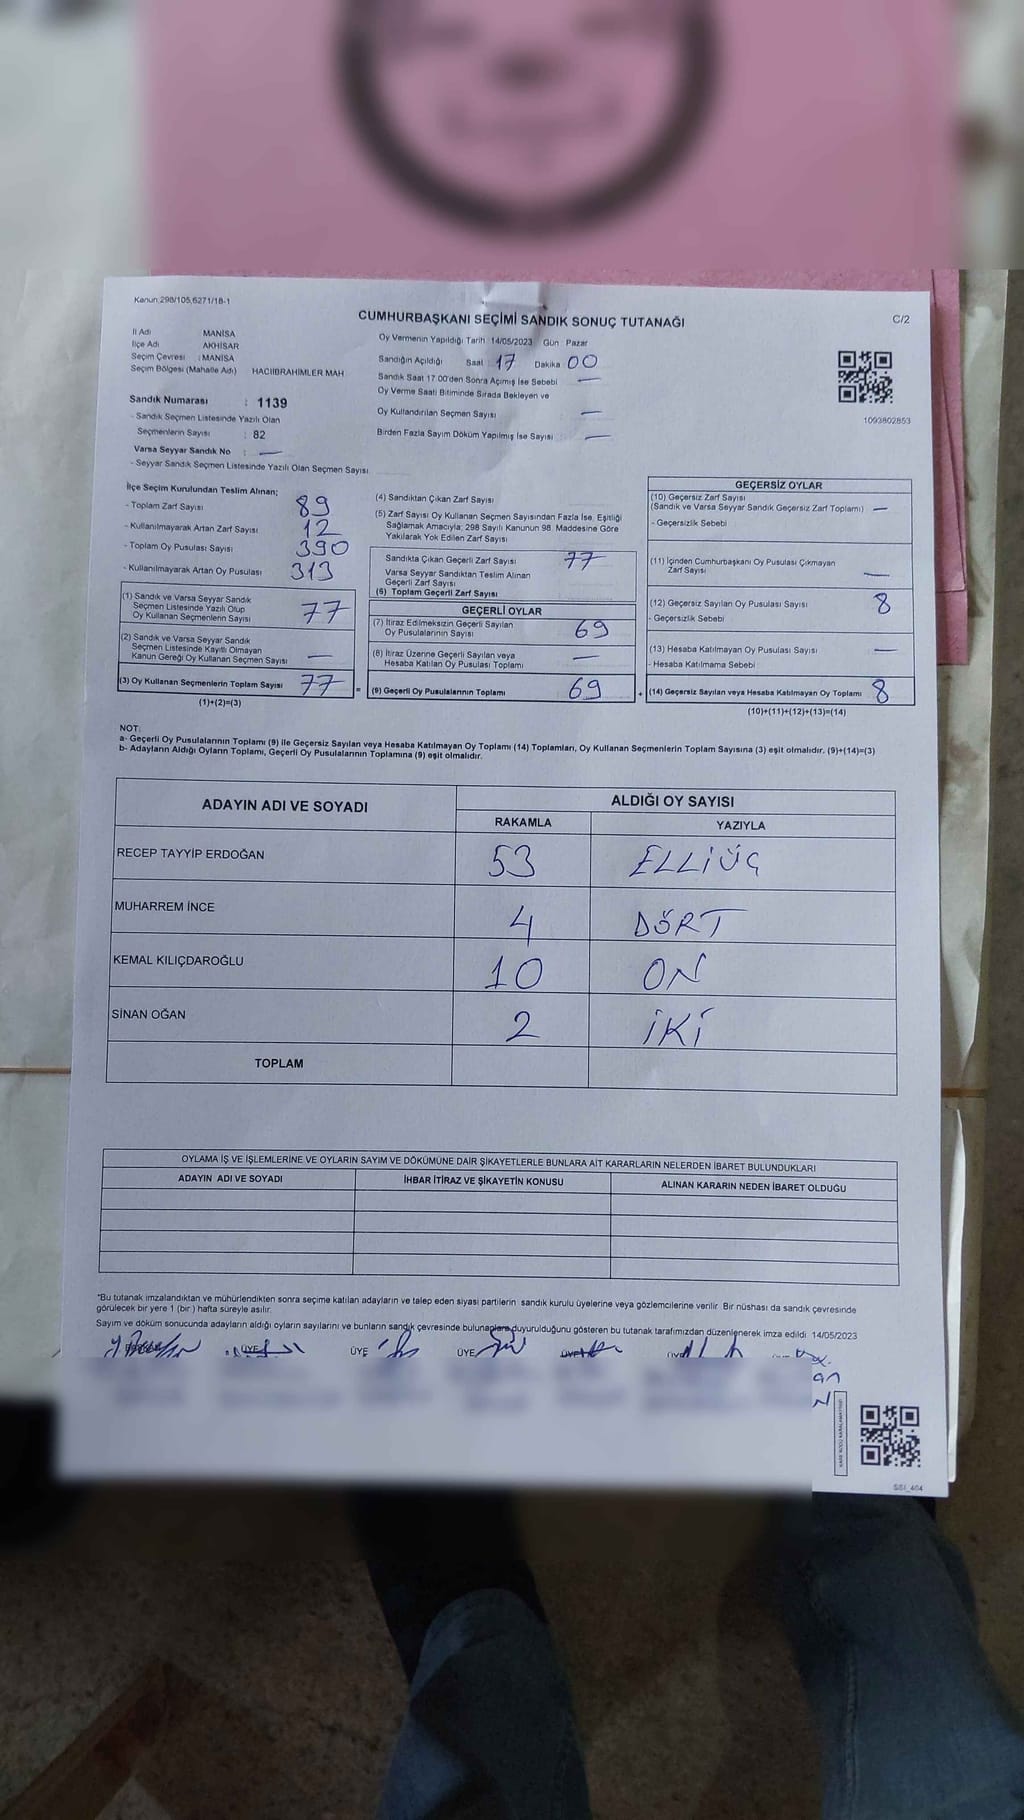 Kanun:298/105,6271/18-1
CUMHURBAŞKANI SEÇİMİ SANDIK SONUÇ TUTANAĞI
C/2
İl Adı MANİSA
İlçe Adı AKHİSAR
Seçim Çevresi : MANİSA
Seçim Bölgesi (Mahalle Adı) HACIİBRAHİMLER MAH.
Sandık Numarası : 1139
- Sandık Seçmen Listesinde Yazılı Olan
Seçmenlerin Sayısı : 82
Varsa Seyyar Sandık No : —
- Seyyar Sandık Seçmen Listesinde Yazılı Olan Seçmen Sayısı
Oy Vermenin Yapıldığı Tarih 14/05/2023 Gün Pazar
Sandığın Açıldığı Saat : 17 Dakika 00
Sandık Saat 17:00'den Sonra Açımış İse Sebebi —
Oy Verme Saati Bitiminde Sırada Bekleyen ve
Oy Kullandırılan Seçmen Sayısı —
Birden Fazla Sayım Döküm Yapılmış İse Sayısı —
1093802853
İlçe Seçim Kurulundan Teslim Alınan;
- Toplam Zarf Sayısı 89
- Kullanılmayarak Artan Zarf Sayısı 12
- Toplam Oy Pusulası Sayısı 390
- Kullanılmayarak Artan Oy Pusulası 313
(1) Sandık ve Varsa Seyyar Sandık
Seçmen Listesinde Yazılı Olup
Oy Kullanan Seçmenlerin Sayısı 77
(2) Sandık ve Varsa Seyyar Sandık
Seçmen Listesinde Kayıtlı Olmayan
Kanun Gereği Oy Kullanan Seçmen Sayısı —
(3) Oy Kullanan Seçmenlerin Toplam Sayısı 77 =
(1)+(2)=(3)
(4) Sandıktan Çıkan Zarf Sayısı
(5) Zarf Sayısı Oy Kullanan Seçmen Sayısından Fazla İse, Eşitliği
Sağlamak Amacıyla; 298 Sayılı Kanunun 98. Maddesine Göre
Yakılarak Yok Edilen Zarf Sayısı
Sandıkta Çıkan Geçerli Zarf Sayısı 77
Varsa Seyyar Sandıktan Teslim Alınan
Geçerli Zarf Sayısı
(6) Toplam Geçerli Zarf Sayısı
GEÇERLİ OYLAR
(7) İtiraz Edilmeksizin Geçerli Sayılan
Oy Pusulalarının Sayısı 69
(8) İtiraz Üzerine Geçerli Sayılan veya
Hesaba Katılan Oy Pusulası Toplamı —
(9) Geçerli Oy Pusulalarının Toplamı 69 +
GEÇERSİZ OYLAR
(10) Geçersiz Zarf Sayısı
(Sandık ve Varsa Seyyar Sandık Geçersiz Zarf Toplamı) —
- Geçersizlik Sebebi
(11) İçinden Cumhurbaşkanı Oy Pusulası Çıkmayan
Zarf Sayısı —
(12) Geçersiz Sayılan Oy Pusulası Sayısı 8
- Geçersizlik Sebebi
(13) Hesaba Katılmayan Oy Pusulası Sayısı —
- Hesaba Katılmama Sebebi
(14) Geçersiz Sayılan veya Hesaba Katılmayan Oy Toplamı 8
(10)+(11)+(12)+(13)=(14)
NOT:
a- Geçerli Oy Pusulalarının Toplamı (9) ile Geçersiz Sayılan veya Hesaba Katılmayan Oy Toplamı (14) Toplamları, Oy Kullanan Seçmenlerin Toplam Sayısına (3) eşit olmalıdır. (9)+(14)=(3)
b- Adayların Aldığı Oyların Toplamı, Geçerli Oy Pusulalarının Toplamına (9) eşit olmalıdır.
ADAYIN ADI VE SOYADI
ALDIĞI OY SAYISI
RAKAMLA YAZIYLA
RECEP TAYYİP ERDOĞAN 53 ELLİÜÇ
MUHARREM İNCE 4 DÖRT
KEMAL KILIÇDAROĞLU 10 ON
SİNAN OĞAN 2 İKİ
TOPLAM
OYLAMA İŞ VE İŞLEMLERİNE VE OYLARIN SAYIM VE DÖKÜMÜNE DAİR ŞİKAYETLERLE BUNLARA AİT KARARLARIN NELERDEN İBARET BULUNDUKLARI
ADAYIN ADI VE SOYADI İHBAR İTİRAZ VE ŞİKAYETİN KONUSU ALINAN KARARIN NEDEN İBARET OLDUĞU
*Bu tutanak imzalandıktan ve mühürlendikten sonra seçime katılan adayların ve talep eden siyasi partilerin sandık kurulu üyelerine veya gözlemcilerine verilir. Bir nüshası da sandık çevresinde
görülecek bir yere 1 (bir ) hafta süreyle asılır.
Sayım ve döküm sonucunda adayların aldığı oyların sayılarını ve bunların sandık çevresinde bulunanlara duyurulduğunu gösteren bu tutanak tarafımızdan düzenlenerek imza edildi. 14/05/2023
ÜYE ÜYE ÜYE ÜYE
SSI_404